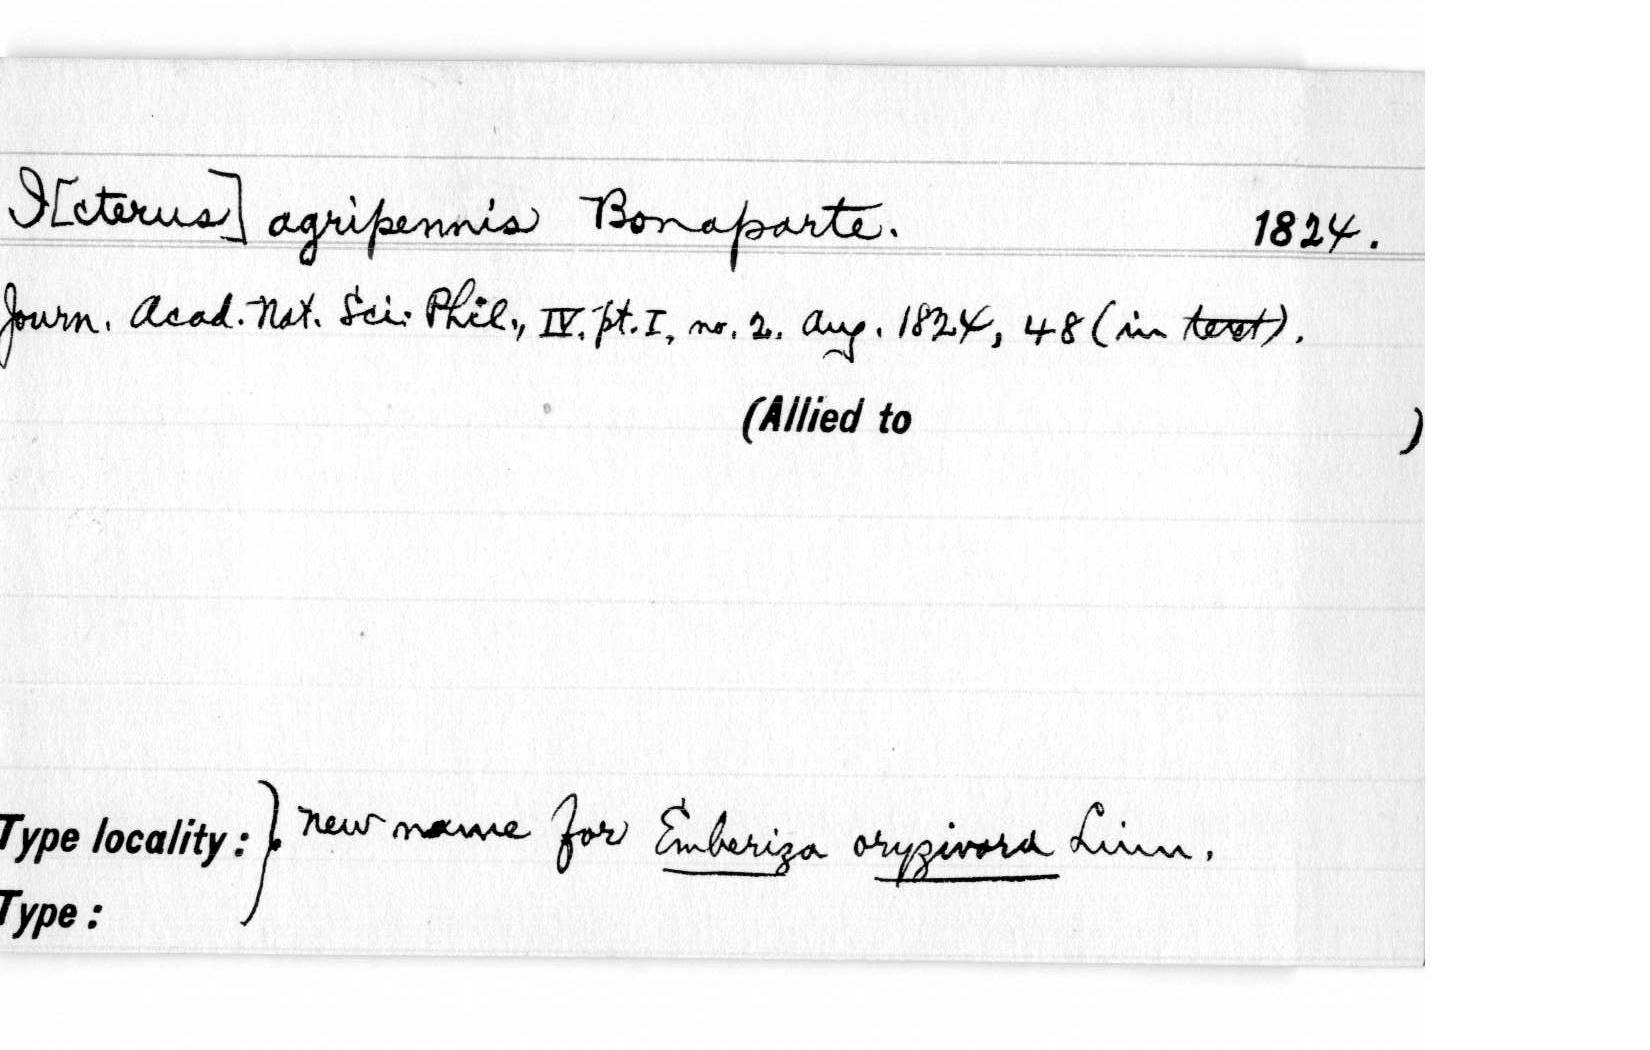 I[cterus] agripennis Bonaparte. 1824.
Journ. Acad. Nat. Sci. Phil., IV. pt. I, no. 2. Aug. 1824, 48 (in text).
(Allied to )
Type locality: } New name for Emberiza oryzivora Linn.
Type: